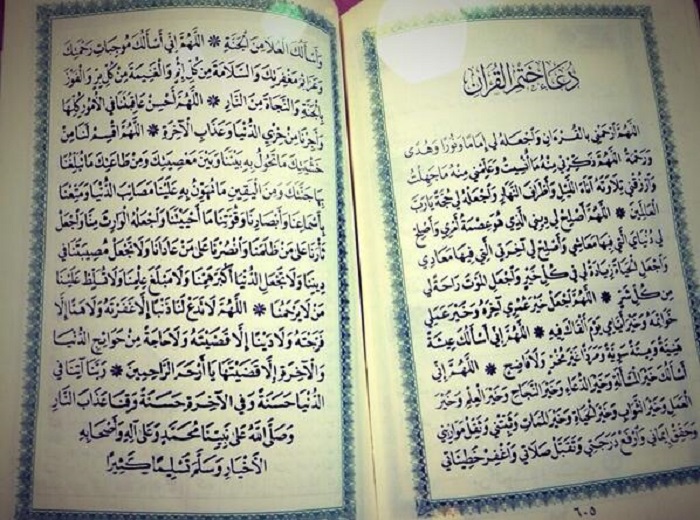 دُعَاءُ خَتْمِ الْقُرْآنِ
اللَّهُمَّ ارْحَمْنِي بِالْقُرْءَانِ وَاجْعَلْهُ لِي إِمَامًا وَنُورًا وَهُدًى
وَرَحْمَةً اللَّهُمَّ ذَكِّرْنِي مِنْهُ مَا نُسِّيتُ وَعَلِّمْنِي مِنْهُ مَا جَهِلْتُ
وَارْزُقْنِي تِلَاوَتَهُ آنَاءَ اللَّيْلِ وَأَطْرَافَ النَّهَارِ وَاجْعَلْهُ لِي حُجَّةً يَارَبَّ
الْعَالَمِينَ * اللَّهُمَّ أَصْلِحْ لِي دِينِي الَّذِي هُوَ عِصْمَةُ أَمْرِي وَأَصْلِحْ
لِي دُنْيَايَ الَّتِي فِيهَا مَعَاشِي وَأَصْلِحْ لِي آخِرَتِي الَّتِي فِيهَا مَعَادِي
وَاجْعَلِ الْحَيَاةَ زِيَادَةً لِي فِي كُلِّ خَيْرٍ وَاجْعَلِ الْمَوْتَ رَاحَةً لِي
مِنْ كُلِّ شَرٍّ * اللَّهُمَّ اجْعَلْ خَيْرَ عُمْرِي آخِرَهُ وَخَيْرَ عَمَلِي
خَوَاتِمَهُ وَخَيْرَ أَيَّامِي يَوْمَ أَلْقَاكَ فِيهِ * اللَّهُمَّ إِنِّي أَسْأَلُكَ عِيشَةً
هَنِيَّةً وَمِيتَةً سَوِيَّةً وَمَرَدًّا غَيْرَ مُخْزٍ وَلَا فَاضِحٍ * اللَّهُمَّ إِنِّي
أَسْأَلُكَ خَيْرَ الْمَسْأَلَةِ وَخَيْرَ الدُّعَاءِ وَخَيْرَ النَّجَاحِ وَخَيْرَ الْعِلْمِ وَخَيْرَ
الْعَمَلِ وَخَيْرَ الثَّوَابِ وَخَيْرَ الْحَيَاةِ وَخَيْرَ الْمَمَاتِ وَثَبِّتْنِي وَثَقِّلْ مَوَازِينِي
وَحَقِّقْ إِيمَانِي وَارْفَعْ دَرَجَتِي وَتَقَبَّلْ صَلَاتِي وَاغْفِرْ خَطِيئَاتِي
٦٠٥
وَأَسْأَلُكَ الْعُلَا مِنَ الْجَنَّةِ * اللَّهُمَّ إِنِّي أَسْأَلُكَ مُوجِبَاتِ رَحْمَتِكَ
وَعَزَائِمَ مَغْفِرَتِكَ وَالسَّلَامَةَ مِنْ كُلِّ إِثْمٍ وَالْغَنِيمَةَ مِنْ كُلِّ بِرٍّ وَالْفَوْزَ
بِالْجَنَّةِ وَالنَّجَاةَ مِنَ النَّارِ * اللَّهُمَّ أَحْسِنْ عَاقِبَتَنَا فِي الْأُمُورِ كُلِّهَا
وَأَجِرْنَا مِنْ خِزْيِ الدُّنْيَا وَعَذَابِ الْآخِرَةِ * اللَّهُمَّ اقْسِمْ لَنَا مِنْ
خَشْيَتِكَ مَا تَحُولُ بِهِ بَيْنَنَا وَبَيْنَ مَعْصِيَتِكَ وَمِنْ طَاعَتِكَ مَا تُبَلِّغُنَا
بِهَا جَنَّتَكَ وَمِنَ الْيَقِينِ مَا تُهَوِّنُ بِهِ عَلَيْنَا مَصَائِبَ الدُّنْيَا وَمَتِّعْنَا
بِأَسْمَاعِنَا وَأَبْصَارِنَا وَقُوَّتِنَا مَا أَحْيَيْتَنَا وَاجْعَلْهُ الْوَارِثَ مِنَّا وَاجْعَلْ
ثَأْرَنَا عَلَى مَنْ ظَلَمَنَا وَانْصُرْنَا عَلَى مَنْ عَادَانَا وَلَا تَجْعَلْ مُصِيبَتَنَا فِي
دِينِنَا وَلَا تَجْعَلِ الدُّنْيَا أَكْبَرَ هَمِّنَا وَلَا مَبْلَغَ عِلْمِنَا وَلَا تُسَلِّطْ عَلَيْنَا
مَنْ لَا يَرْحَمُنَا * اللَّهُمَّ لَا تَدَعْ لَنَا ذَنْبًا إِلَّا غَفَرْتَهُ وَلَا هَمًّا إِلَّا
فَرَّجْتَهُ وَلَا دَيْنًا إِلَّا قَضَيْتَهُ وَلَا حَاجَةً مِنْ حَوَائِجِ الدُّنْيَا
وَالْآخِرَةِ إِلَّا قَضَيْتَهَا يَا أَرْحَمَ الرَّاحِمِينَ * رَبَّنَا آتِنَا فِي
الدُّنْيَا حَسَنَةً وَفِي الْآخِرَةِ حَسَنَةً وَقِنَا عَذَابَ النَّارِ
وَصَلَّى اللَّهُ عَلَى نَبِيِّنَا مُحَمَّدٍ وَعَلَى آلِهِ وَأَصْحَابِهِ
الْأَخْيَارِ وَسَلَّمَ تَسْلِيمًا كَثِيرًا